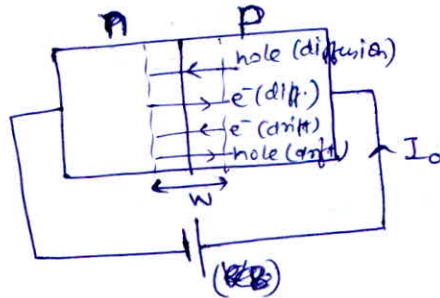 n p
hole (diffusion)
e⁻ (diff.)
e⁻ (drift)
hole (drift)
I₀
W